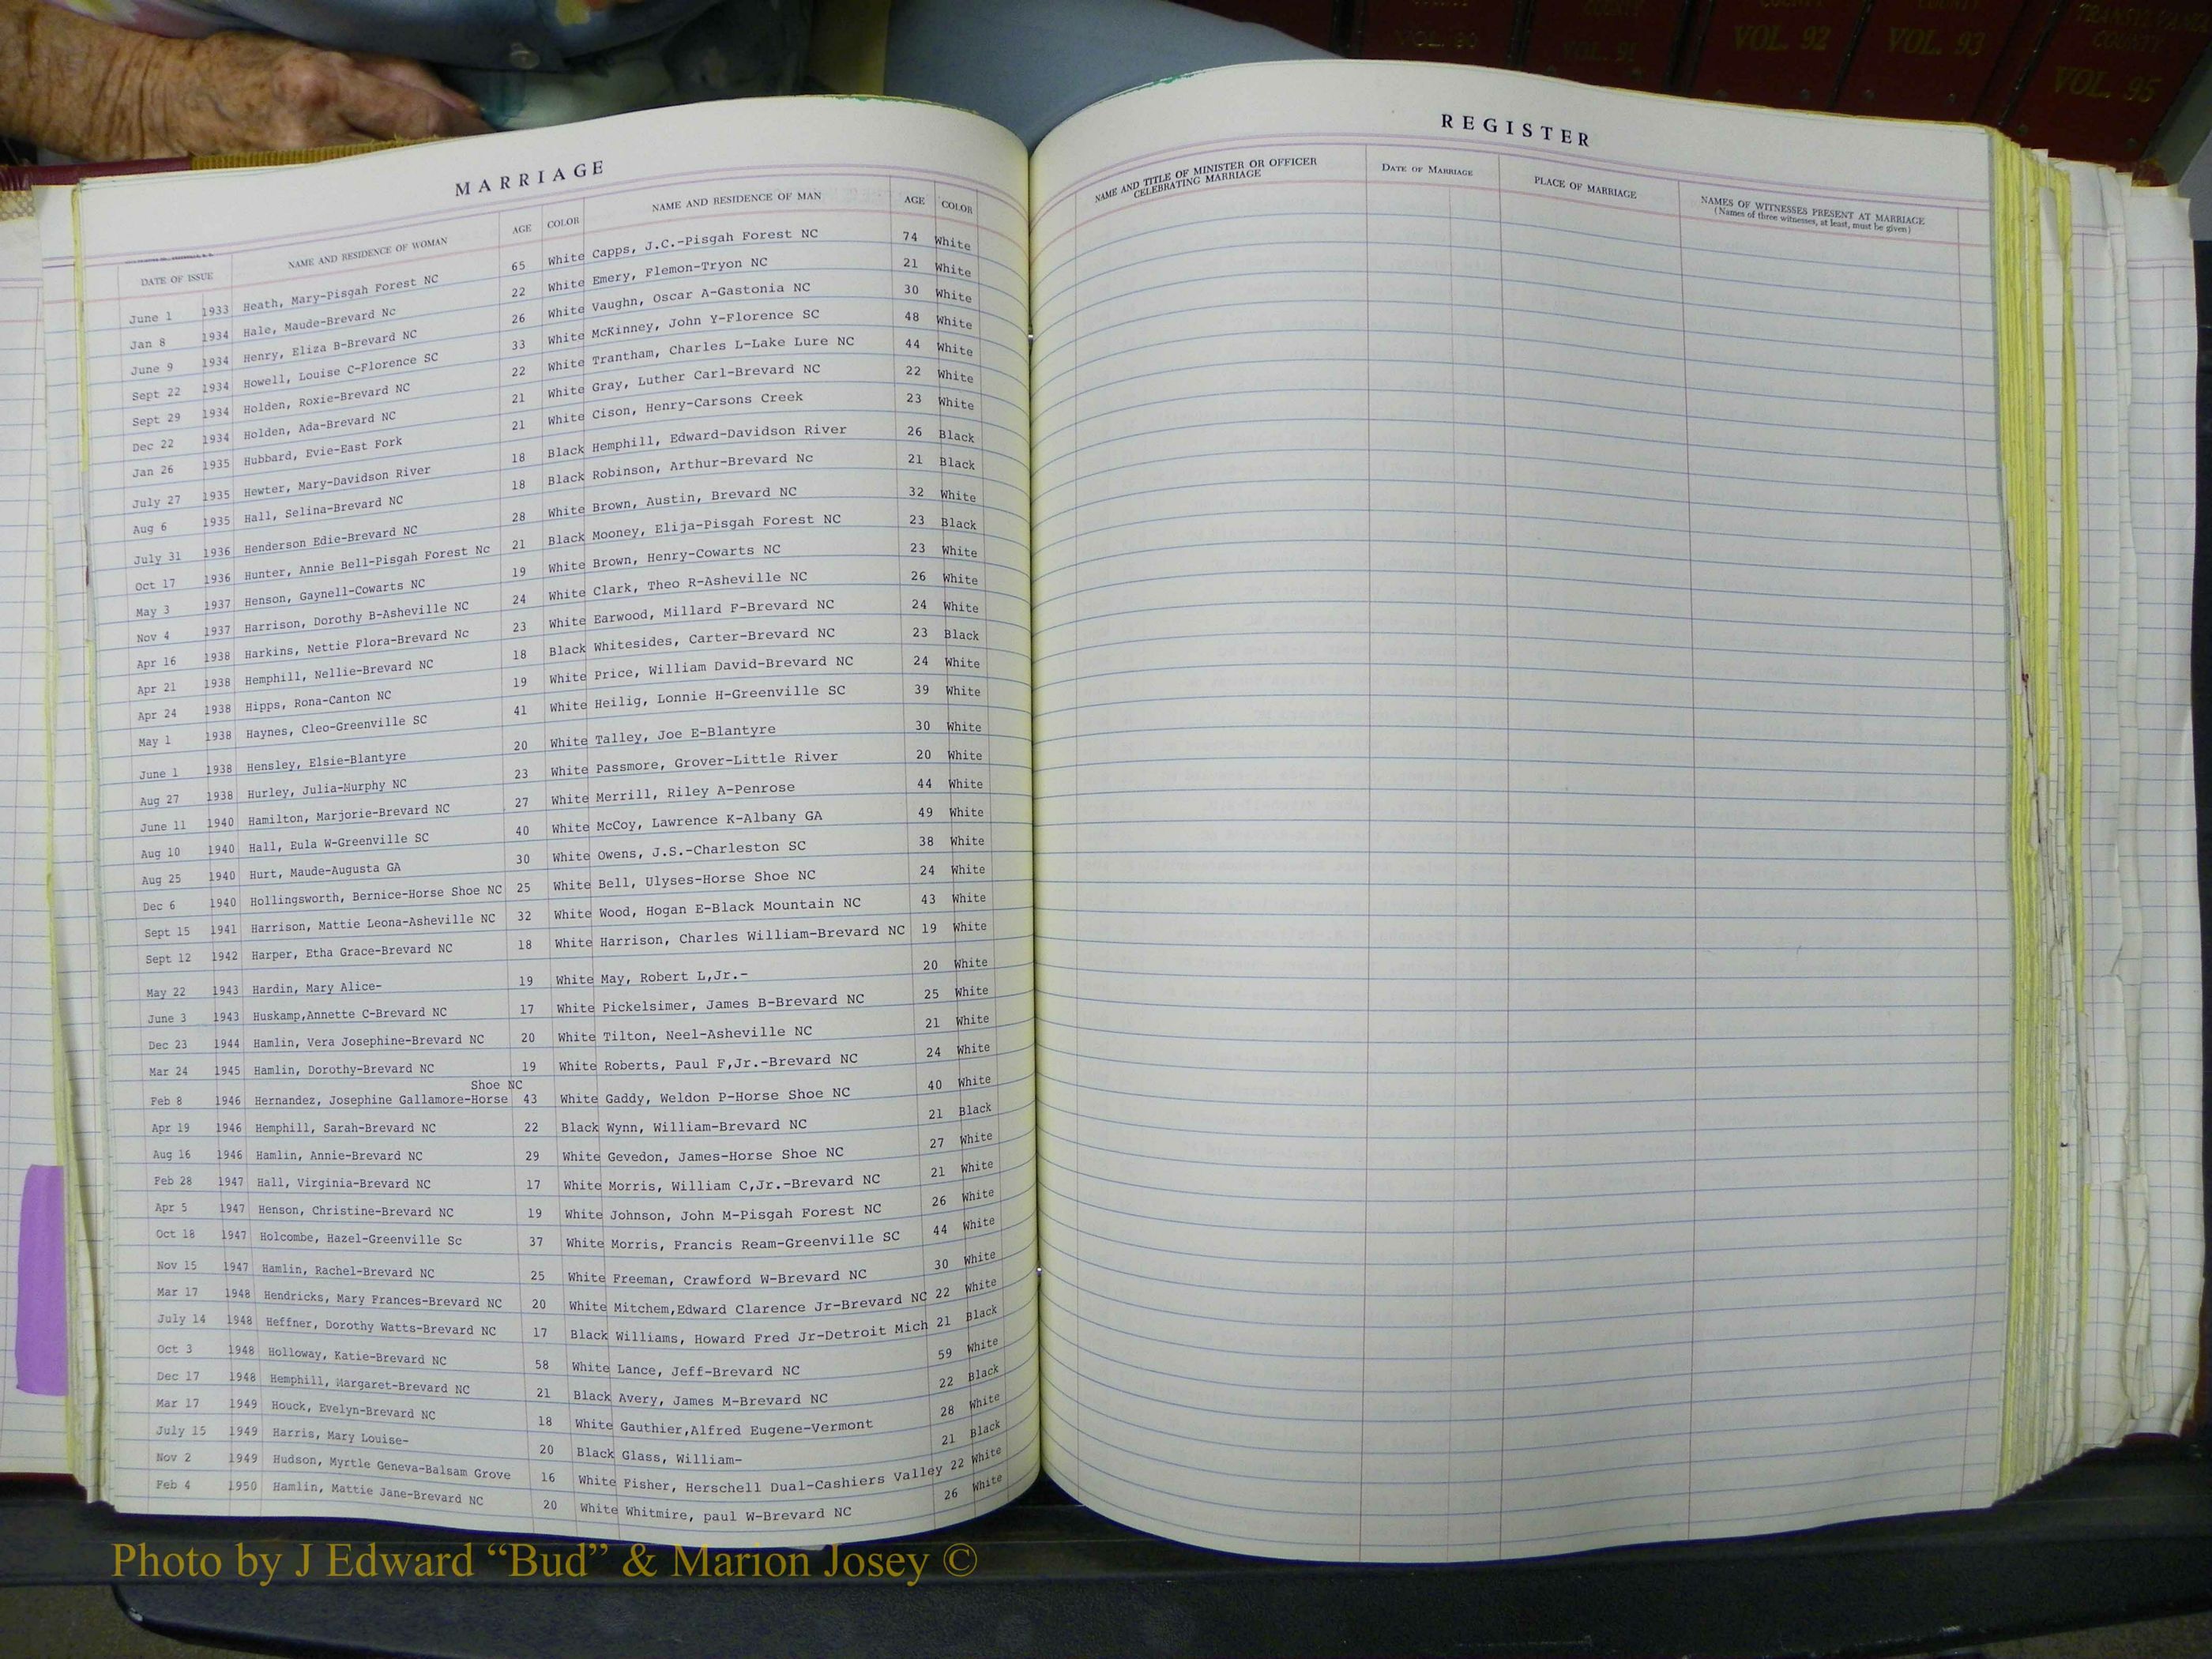 VOL. 90
VOL. 91
COUNTY
VOL. 92
COUNTY
VOL. 93
TRANSYLVANIA
COUNTY
VOL. 95
MARRIAGE
DATE OF ISSUE NAME AND RESIDENCE OF WOMAN AGE COLOR NAME AND RESIDENCE OF MAN AGE COLOR
June 1 1933 Heath, Mary-Pisgah Forest NC 65 White Capps, J.C.-Pisgah Forest NC 74 White
Jan 8 1934 Hale, Maude-Brevard Nc 22 White Emery, Flemon-Tryon NC 21 White
June 9 1934 Henry, Eliza B-Brevard NC 26 White Vaughn, Oscar A-Gastonia NC 30 White
Sept 22 1934 Howell, Louise C-Florence SC 33 White McKinney, John Y-Florence SC 48 White
Sept 29 1934 Holden, Roxie-Brevard NC 22 White Trantham, Charles L-Lake Lure NC 44 White
Dec 22 1934 Holden, Ada-Brevard NC 21 White Gray, Luther Carl-Brevard NC 22 White
Jan 26 1935 Hubbard, Evie-East Fork 21 White Cison, Henry-Carsons Creek 23 White
July 27 1935 Hewter, Mary-Davidson River 18 Black Hemphill, Edward-Davidson River 26 Black
Aug 6 1935 Hall, Selina-Brevard NC 18 Black Robinson, Arthur-Brevard Nc 21 Black
July 31 1936 Henderson Edie-Brevard NC 28 White Brown, Austin, Brevard NC 32 White
Oct 17 1936 Hunter, Annie Bell-Pisgah Forest Nc 21 Black Mooney, Elija-Pisgah Forest NC 23 Black
May 3 1937 Henson, Gaynell-Cowarts NC 19 White Brown, Henry-Cowarts NC 23 White
Nov 4 1937 Harrison, Dorothy B-Asheville NC 24 White Clark, Theo R-Asheville NC 26 White
Apr 16 1938 Harkins, Nettie Flora-Brevard Nc 23 White Earwood, Millard F-Brevard NC 24 White
Apr 21 1938 Hemphill, Nellie-Brevard NC 18 Black Whitesides, Carter-Brevard NC 23 Black
Apr 24 1938 Hipps, Rona-Canton NC 19 White Price, William David-Brevard NC 24 White
May 1 1938 Haynes, Cleo-Greenville SC 41 White Heilig, Lonnie H-Greenville SC 39 White
June 1 1938 Hensley, Elsie-Blantyre 20 White Talley, Joe E-Blantyre 30 White
Aug 27 1938 Hurley, Julia-Murphy NC 23 White Passmore, Grover-Little River 20 White
June 11 1940 Hamilton, Marjorie-Brevard NC 27 White Merrill, Riley A-Penrose 44 White
Aug 10 1940 Hall, Eula W-Greenville SC 40 White McCoy, Lawrence K-Albany GA 49 White
Aug 25 1940 Hurt, Maude-Augusta GA 30 White Owens, J.S.-Charleston SC 38 White
Dec 6 1940 Hollingsworth, Bernice-Horse Shoe NC 25 White Bell, Ulyses-Horse Shoe NC 24 White
Sept 15 1941 Harrison, Mattie Leona-Asheville NC 32 White Wood, Hogan E-Black Mountain NC 43 White
Sept 12 1942 Harper, Etha Grace-Brevard NC 18 White Harrison, Charles William-Brevard NC 19 White
May 22 1943 Hardin, Mary Alice- 19 White May, Robert L,Jr.- 20 White
June 3 1943 Huskamp,Annette C-Brevard NC 17 White Pickelsimer, James B-Brevard NC 25 White
Dec 23 1944 Hamlin, Vera Josephine-Brevard NC 20 White Tilton, Neel-Asheville NC 21 White
Mar 24 1945 Hamlin, Dorothy-Brevard NC 19 White Roberts, Paul F,Jr.-Brevard NC 24 White
Shoe NC
Feb 8 1946 Hernandez, Josephine Gallamore-Horse 43 White Gaddy, Weldon P-Horse Shoe NC 40 White
Apr 19 1946 Hemphill, Sarah-Brevard NC 22 Black Wynn, William-Brevard NC 21 Black
Aug 16 1946 Hamlin, Annie-Brevard NC 29 White Gevedon, James-Horse Shoe NC 27 White
Feb 28 1947 Hall, Virginia-Brevard NC 17 White Morris, William C,Jr.-Brevard NC 21 White
Apr 5 1947 Henson, Christine-Brevard NC 19 White Johnson, John M-Pisgah Forest NC 26 White
Oct 18 1947 Holcombe, Hazel-Greenville Sc 37 White Morris, Francis Ream-Greenville SC 44 White
Nov 15 1947 Hamlin, Rachel-Brevard NC 25 White Freeman, Crawford W-Brevard NC 30 White
Mar 17 1948 Hendricks, Mary Frances-Brevard NC 20 White Mitchem,Edward Clarence Jr-Brevard NC 22 White
July 14 1948 Heffner, Dorothy Watts-Brevard NC 17 Black Williams, Howard Fred Jr-Detroit Mich 21 Black
Oct 3 1948 Holloway, Katie-Brevard NC 58 White Lance, Jeff-Brevard NC 59 White
Dec 17 1948 Hemphill, Margaret-Brevard NC 21 Black Avery, James M-Brevard NC 22 Black
Mar 17 1949 Houck, Evelyn-Brevard NC 18 White Gauthier,Alfred Eugene-Vermont 28 White
July 15 1949 Harris, Mary Louise- 20 Black Glass, William- 21 Black
Nov 2 1949 Hudson, Myrtle Geneva-Balsam Grove 16 White Fisher, Herschell Dual-Cashiers Valley 22 White
Feb 4 1950 Hamlin, Mattie Jane-Brevard NC 20 White Whitmire, paul W-Brevard NC 26 White
REGISTER
NAME AND TITLE OF MINISTER OR OFFICER
CELEBRATING MARRIAGE
DATE OF MARRIAGE
PLACE OF MARRIAGE
NAMES OF WITNESSES PRESENT AT MARRIAGE
(Names of three witnesses, at least, must be given)
Photo by J Edward “Bud” & Marion Josey ©